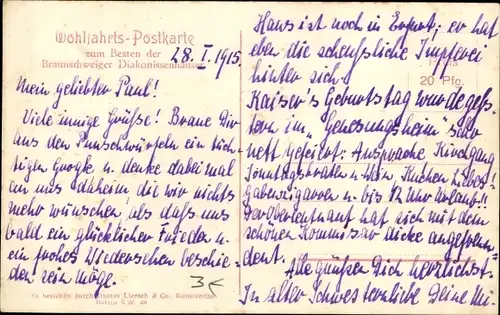 Wohlfahrts-Postkarte
zum Besten der
Braunschweiger Diakonissenanstalt
28. I. 1915.
Mein geliebter Paul!
Viele innige Grüße! Braue Dir
aus den Punschwürfeln ein tüch-
tigen Grogk u. denke dabei mal
an uns daheim die wir nichts
mehr wünschen, als daß uns
bald ein glücklicher Frieden u.
ein frohes Wiedersehen beschie-
den sein möge.
3€
Zu beziehen durch Gustav Liersch & Co., Kunstverlag
Berlin S.W. 48
Hans ist noch in Erfurt; er hat
eben die scheußliche Impferei
hinter sich.
Preis
20 Pfg.
Kaiser's Geburtstag wurde gess-
tern im "Genesungsheim" sehr
nett gefeiert: Ansprache, Kirchgang
Sonntagsbraten u. Kuchen, Liebes-
Gabenzigarren u. bis 12 Uhr Urlaub!!
Der Oberleutnant hat sich mit dem
schönen Kommissar dicke angefreun-
det.
Alle grüßen Dich herzlichst.
In alter Schwesternliebe Deine Mi-